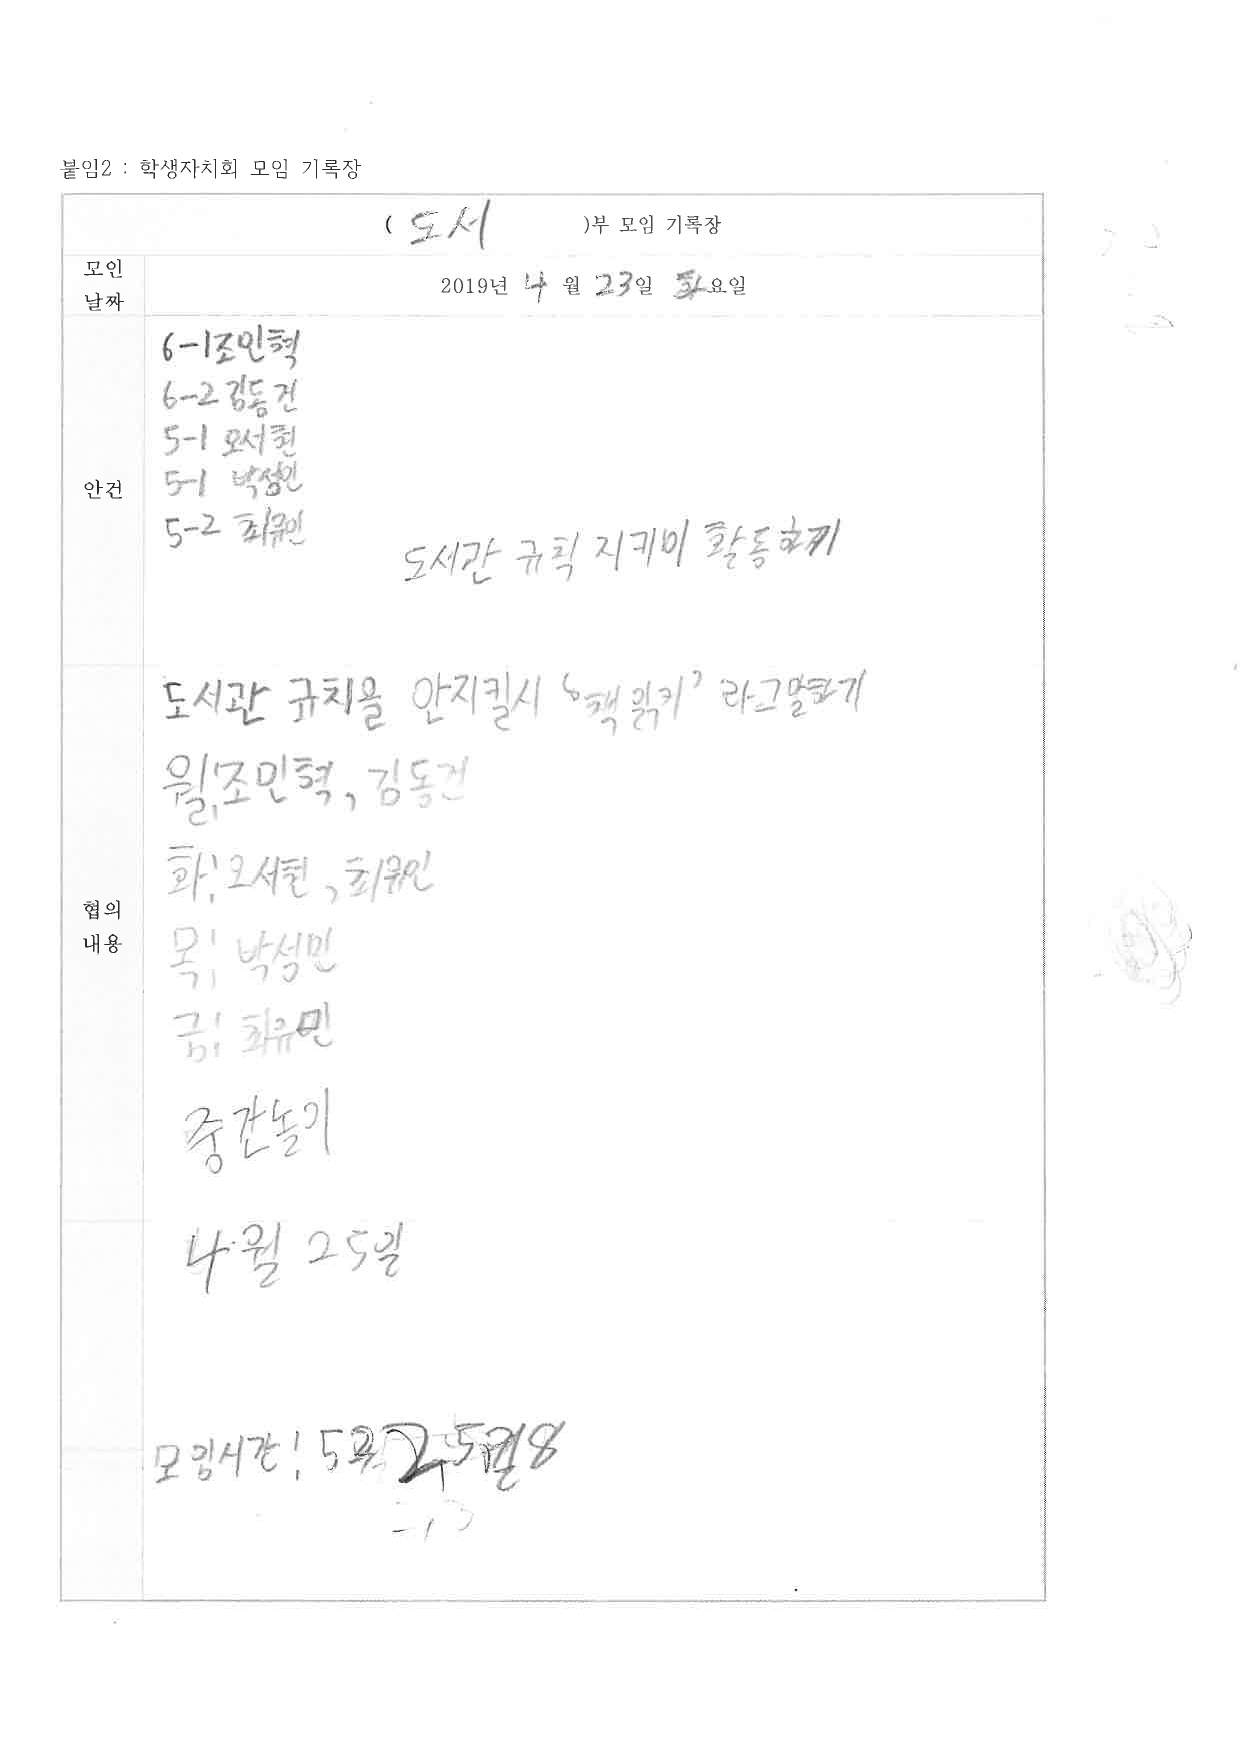 붙임2 : 학생자치회 모임 기록장
( 도서 )부 모임 기록장
모인 날짜
2019년 4월 23일 화요일
안건
6-1 조민혁
6-2 김동건
5-1 오서현
5-1 박성민
5-2 최유민
도서관 규칙 지키미 활동하기
협의 내용
도서관 규칙을 안지킬시 '책 읽기' 라고말하기
월: 조민혁, 김동건
화: 오서현, 최유민
목: 박성민
금: 최유민
중간놀이
4월 25일
모임시간: